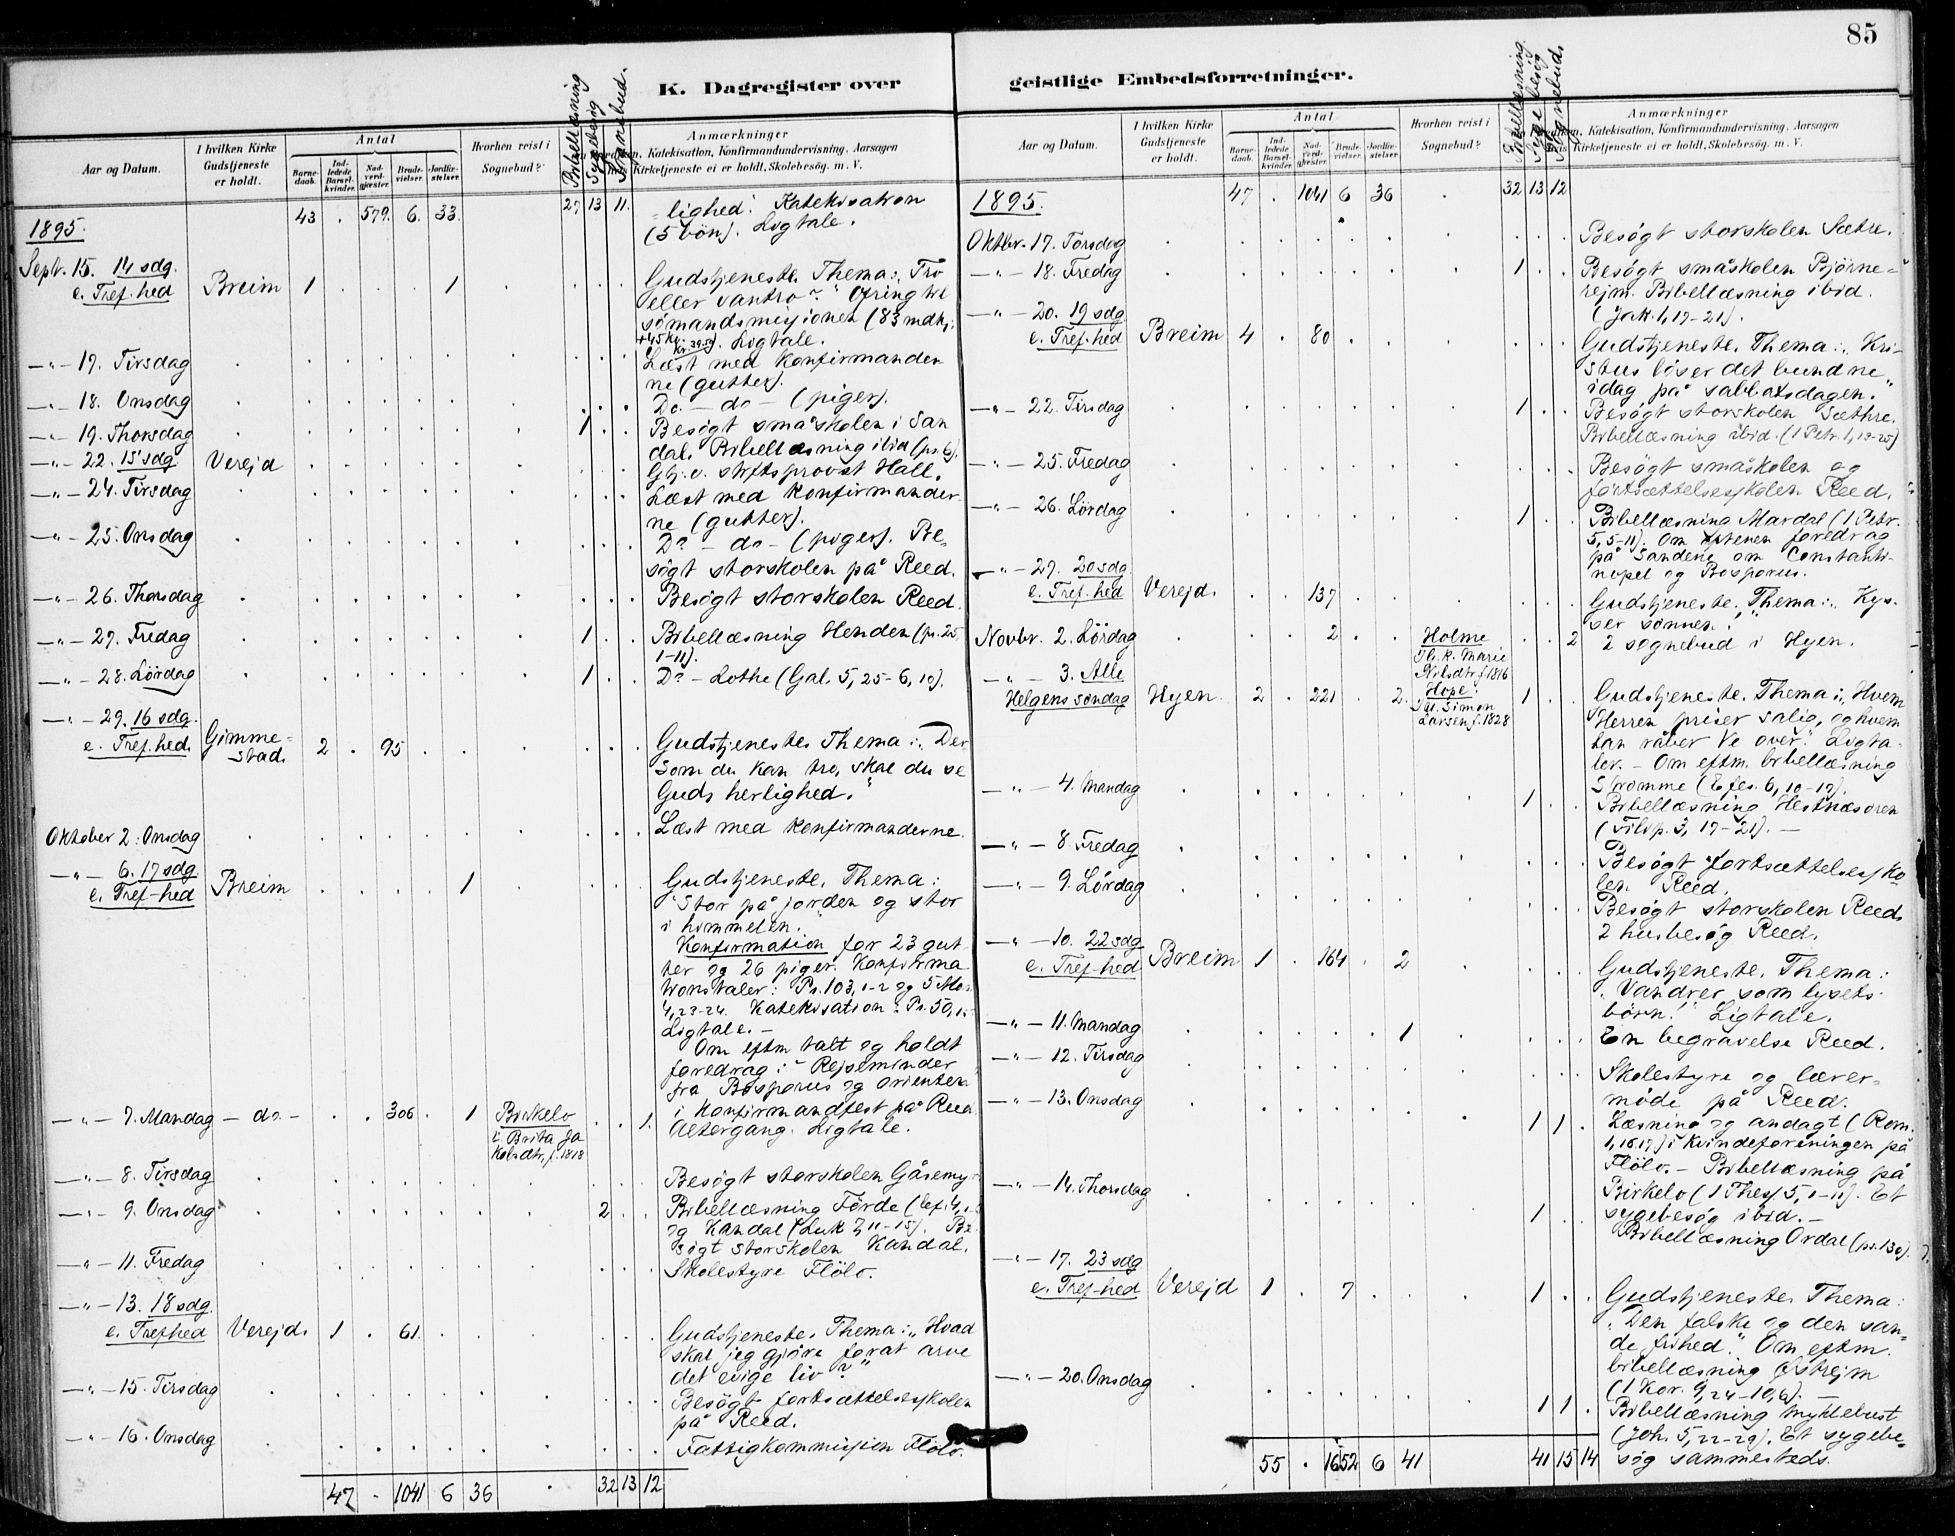 85
K. Dagregister over
geistlige Embedsforretninger.
Aar og Datum.
I hvilken Kirke Gudstjeneste er holdt.
Antal
Barnedaab.
Indledede Barselkvinder.
Nadverdgjæster.
Brudevielser.
Jordfæstelser.
Hvorhen reist i Sognebud?
Bibellæsning
Sygebesøg
Sognebud.
Anmærkninger
Katekisation, Konfirmandundervisning, Aarsagen
Kirketjeneste ei er holdt, Skolebesøg. m. V.
1895.
43 . 579. 6. 33. 27 13 11.
lighed. Katekisation
(5 bön). Ligtale.
Sept. 15. 14 sdg.
e. Tref-hed Breim 1 . . . 1
Gudstjeneste. Thema: Tro
eller vantro? Ofring til
sømandsmisjonen (83 mdk,
Ligtale.
—"— 17. Tirsdag
Læst med konfirmander
ne (gutter).
—"— 18. Onsdag
Do. — do — (piger).
—"— 19. Thorsdag 1 . .
Besøgt småskolen i San
dal. Bibellæsning ibid (ps. 6).
—"— 22. 15 sdg Verejd
Gtj. v. stiftsprovst Hall.
—"— 24. Tirsdag
Læst med konfirmander
ne (gutter).
—"— 25. Onsdag
Do — do — (piger). Be-
søgt storskolen på Reed.
—"— 26. Thorsdag
Besøgt storskolen Reed.
—"— 27. Fredag 1 . .
Bibellæsning Henden (ps. 25,
1-11).
—"— 28. Lördag 1 . .
Do — Lothe (Gal. 5, 25-6, 10).
—"— 29. 16 sdg.
e. Tref. hed. Gimme-
stad. 2 . 95
Gudstjeneste. Thema: "Der
som du kan tro, skal du se
Guds herlighed."
Oktober 2. Onsdag
Læst med konfirmanderne.
—"— 6. 17 sdg
e. Tref-hed Breim 1
Gudstjeneste. Thema:
Stor på jorden og stor
i himmelen.
Konfirmation for 23 gut-
ter og 26 piger. Konfirma
tionstaler: Ps. 103, 1-2 og 5 Mo.
4, 23-24. Katekisation: Ps. 50, 15
Ligtale. —
Om eftm talt og holdt
foredrag: "Rejseminder
fra Bosporus og orienten
i konfirmandfest på Reed.
—"— 7. Mandag — do — . . 306 . 1 Birkelo . . 1.
Brita Ja
kobsdtr, f. 1818
Altergang. Ligtale.
—"— 8. Tirsdag
Besøgt storskolen Gåsemyr
—"— 9. Onsdag 2 . .
Bibellæsning Förde
og Kandal (Luk 7, 11-15). Be
søgt storskolen Kandal.
—"— 11. Fredag
Skolestyre Flölo.
—"— 13. 18 sdg.
e. Trefhed Verejd. 1 . 61.
Gudstjeneste. Thema: "Hvad
skal jeg gjöre forat arve
det evige liv?"
—"— 15. Tirsdag
Besøgt fortsættelsesskolen
på Reed.
—"— 16. Onsdag
Fattigkommisjion Flölo.
47 . 1041 6 36 . 32 13 12
Aar og Datum.
I hvilken Kirke Gudstjeneste er holdt.
Antal
Barnedaab.
Indledede Barselkvinder.
Nadverdgjæster.
Brudevielser.
Jordfæstelser.
Hvorhen reist i Sognebud?
Bibellæsning.
Sygebesög
Sognebud.
Anmærkninger
Katekisation, Konfirmandundervisning, Aarsagen
Kirketjeneste ei er holdt, Skolebesøg. m. V.
1895.
47 . 1041 6 36 . 32 13 12
Oktbr. 17. Torsdag
Besøgt storskolen Sætre.
—"— 18. Fredag 1 . .
Besøgt småskolen Bjørne-
rejm. Bibellæsning ibid.
(Jak. 1, 17-21).
—"— 20. 19 sdg
e. Tref-hed Breim 4 . 80
Gudstjeneste. Thema: "Kri-
stus löser det bundne
idag på sabbatsdagen."
—"— 22. Tirsdag 1 . .
Besøgt storskolen Sæthre.
Bibellæsning ibid. (1 Petr. 1, 13-25)
—"— 25. Fredag
Besøgt småskolen og
fortsættelsesskolen Reed.
—"— 26. Lördag 1 . .
Bibellæsning Mardal (1 Petr.
5, 5-11). Om aftenen foredrag
på Sandene om Constanti-
nopel og Bosporus.
—"— 27. 20 sdg.
e. Tref-hed Verejd. . . 137
Gudstjeneste. Thema: "Kys-
ser sønnen!"
Novbr. 2. Lördag . . 2 . . Holme . . 2
Marie
Nilsdtr f. 1816
2 sognebud i Hyen.
—"— 3. Alle
Helgens söndag Hyen. 2 . 221 . 2. Hope. 1 . .
Simon
Larsen f. 1828
Gudstjeneste. Thema: "Hvem
Herren priser salig, og hvem
han råber Ve over." Ligta-
ler. — Om eftm. bibellæsning
Strömme (Efes. 6, 10-17).
—"— 4. Mandag 1 . .
Bibellæsning Hestnæsøren
(Filip. 3, 17-21). —
—"— 8. Fredag
Besøgt fortsættelsessko-
len Reed.
—"— 9. Lördag
Besøgt storskolen Reed.
2 husbesøg Reed.
—"— 10. 22 sdg
e. Tref-hed Breim 1 . 164 . 2
Gudstjeneste. Thema:
"Vandrer som lysets
børn!" Ligtale.
—"— 11. Mandag 1
En begravelse Reed.
—"— 12. Tirsdag
Skolestyre og lærer-
möde på Reed.
—"— 13. Onsdag 1 1 .
Læsning og andagt (Rom.
1, 16.17) i kvindeforeningen på
Flölo. — Bibellæsning på
Birkelo (1 Thes. 5, 1-11). Et
sygebesøg ibid. —
—"— 14. Thorsdag 1 . .
Bibellæsning Ordal (ps. 130).
—"— 17. 23 sdg
e. Tref-hed Verejd 1 . 7 1 . .
Gudstjeneste. Thema:
"Den falske og den san-
de frihed." Om eftm.
bibellæsning Østrejm
(1 Kor. 9, 24-10, 6). —
—"— 20. Onsdag 1 1 .
Bibellæsning Myklebust
(Joh. 5, 22-29). Et sygebe-
søg sammesteds.
55 . 1652 6 41 41 15 14